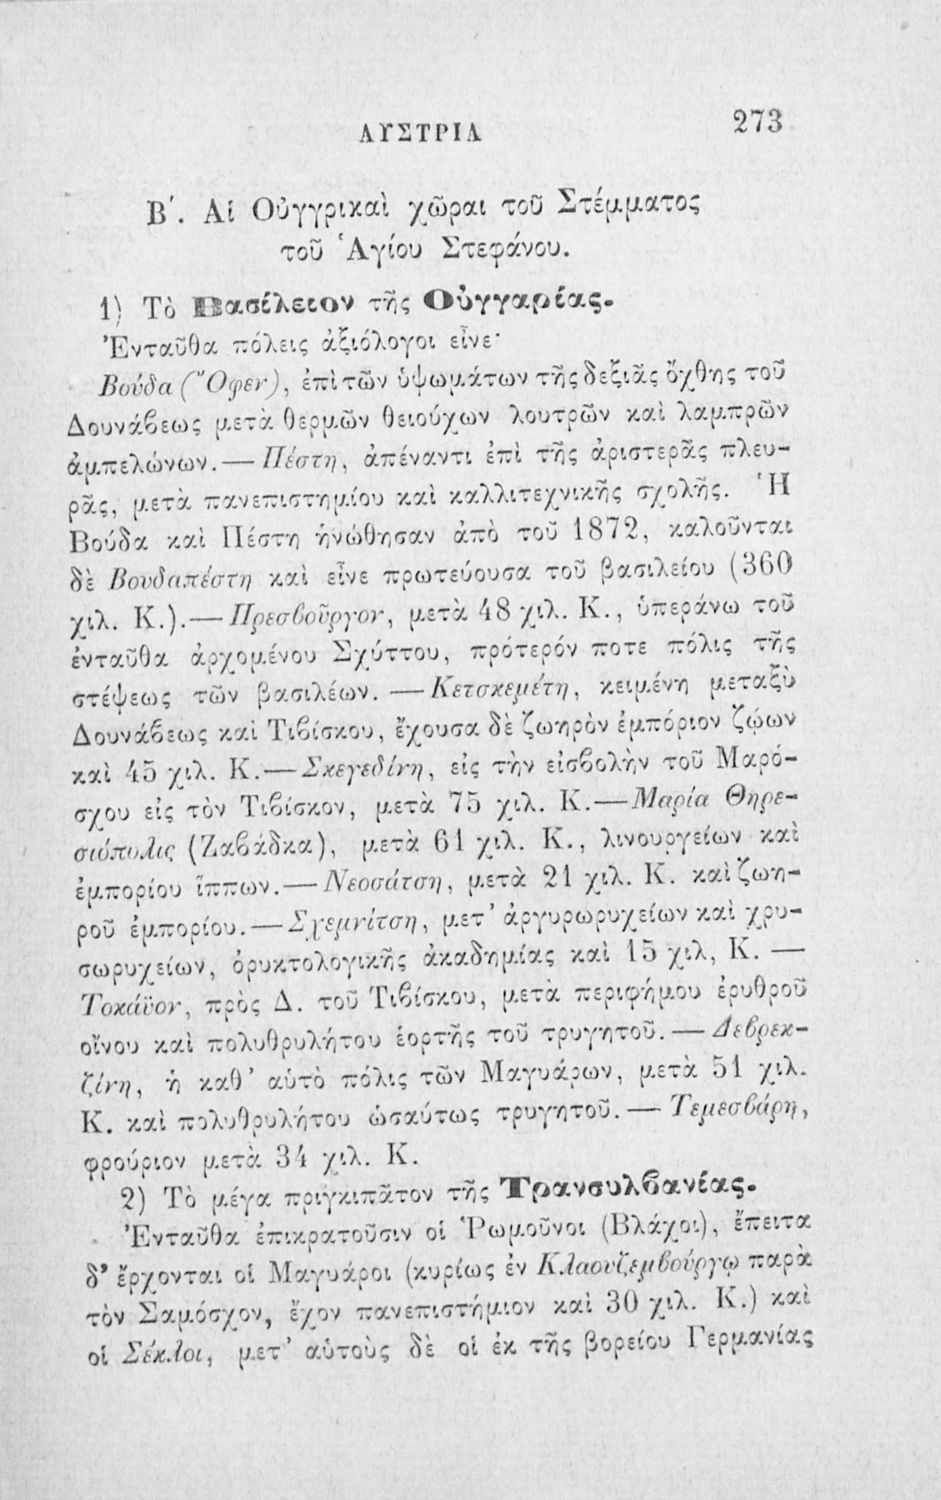 ΑΥΣΤΡΙΑ
273
Β΄. Αἱ Οὑγγρικαὶ χῶραι τοῦ Στέμματος
τοῦ Ἁγίου Στεφάνου.
1) Τὸ Βασίλειον τῆς Οὑγγαρίας.
Ἐνταῦθα πόλεις ἀξιόλογοι εἶνε·
Βούδα (Ὄφεν), ἐπὶ τῶν ὑψωμάτων τῆς δεξιᾶς ὄχθης τοῦ
Δουνάβεως μετὰ θερμῶν θειούχων λουτρῶν καὶ λαμπρῶν
ἀμπελώνων.—Πέστη, ἀπέναντι ἐπὶ τῆς ἀριστερᾶς πλευ-
ρᾶς, μετὰ πανεπιστημίου καὶ καλλιτεχνικῆς σχολῆς. Ἡ
Βούδα καὶ Πέστη ἡνώθησαν ἀπὸ τοῦ 1872, καλοῦνται
δὲ Βουδαπέστη καὶ εἶνε πρωτεύουσα τοῦ βασιλείου (360
χιλ. Κ.).—Πρεσβοῦργον, μετὰ 48 χιλ. Κ., ὑπεράνω τοῦ
ἐνταῦθα ἀρχομένου Σχύττου, πρότερόν ποτε πόλις τῆς
στέψεως τῶν βασιλέων.—Κετσκεμέτη, κειμένη μεταξὺ
Δουνάβεως καὶ Τιβίσκου, ἔχουσα δὲ ζωηρὸν ἐμπόριον ζῴων
καὶ 45 χιλ. Κ.—Σκεγεδίνη, εἰς τὴν εἰσβολὴν τοῦ Μαρό-
σχου εἰς τὸν Τιβίσκον, μετὰ 75 χιλ. Κ.—Μαρία Θηρε-
σιόπολις (Ζαβάδκα), μετὰ 61 χιλ. Κ., λινουργείων καὶ
ἐμπορίου ἵππων.—Νεοσάτση, μετὰ 21 χιλ. Κ. καὶ ζωη-
ροῦ ἐμπορίου.—Σχεμνίτση, μετ' ἀργυρωρυχείων καὶ χρυ-
σωρυχείων, ὀρυκτολογικῆς ἀκαδημίας καὶ 15 χιλ, Κ. —
Τοκάϋον, πρὸς Δ. τοῦ Τιβίσκου, μετὰ περιφήμου ἐρυθροῦ
οἴνου καὶ πολυθρυλήτου ἑορτῆς τοῦ τρυγητοῦ.—Δεβρεκ-
ζίνη, ἡ καθ' αὑτὸ πόλις τῶν Μαγυάρων, μετὰ 51 χιλ.
Κ. καὶ πολυθρυλήτου ὡσαύτως τρυγητοῦ.—Τεμεσβάρη,
φρούριον μετὰ 34 χιλ. Κ.
2) Τὸ μέγα πριγκιπᾶτον τῆς Τρανσυλβανίας.
Ἐνταῦθα ἐπικρατοῦσιν οἱ Ῥωμοῦνοι (Βλάχοι), ἔπειτα
δ' ἔρχονται οἱ Μαγυάροι (κυρίως ἐν Κλαουζεμβούργῳ παρὰ
τὸν Σαμόσχον, ἔχον πανεπιστήμιον καὶ 30 χιλ. Κ.) καὶ
οἱ Σέκλοι, μετ' αὐτοὺς δὲ οἱ ἐκ τῆς βορείου Γερμανίας